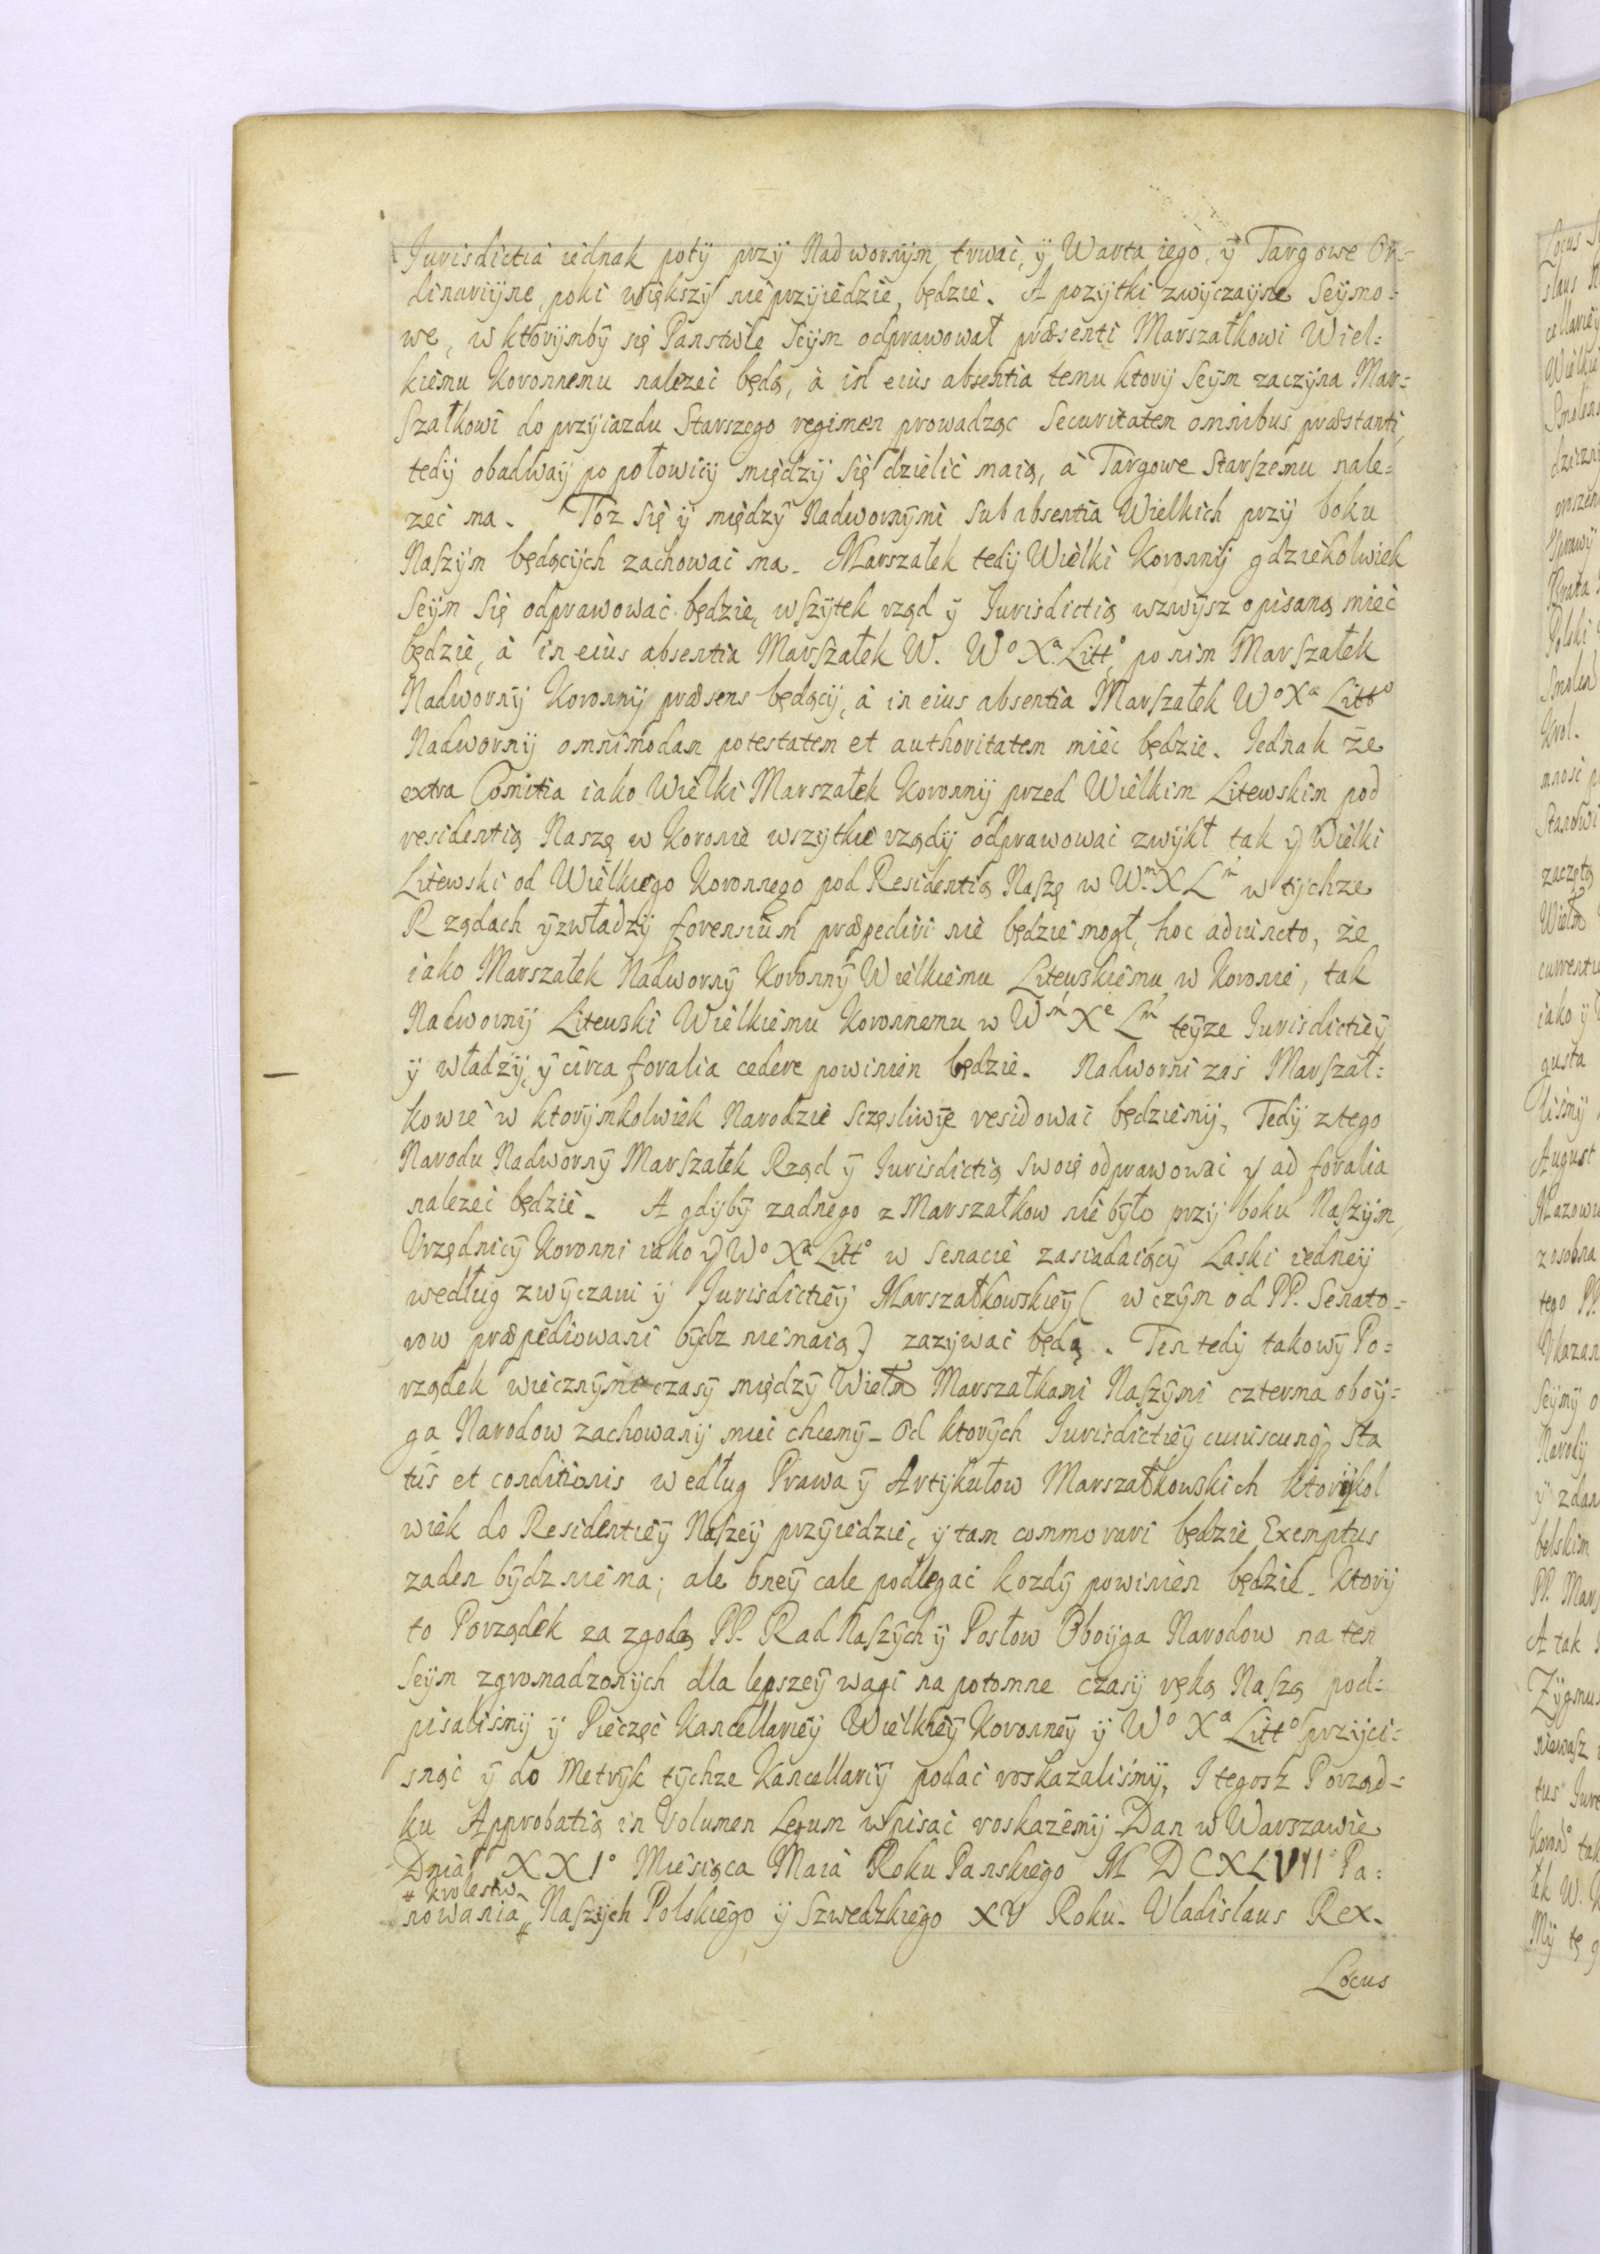 Jurisdictia iednak poty przy Nadwornym trwać, ÿ Warta iego, ÿ Targowe Or-
dinaryine, poki większy nie przyiedzie, będzie. A pozytki zwyczayne Seymo-
we, w ktorymby się Panstwie Seym odprawował præsenti Marszałkowi Wiel-
kiemu Koronnemu nalezeć będą, à in eius absentia temu ktory Seym zaczyna Mar-
szałkowi do przyiazdu Starszego regimen prowadząc Securitatem omnibus præstanti,
tedy obadway po połowicy między się dzielić maią, à Targowe Starszemu nale-
zeć ma. Toz się ÿ między Nadwornymi sub absentia Wielkich przy boku
Naszym będących zachować ma. Marszałek tedy Wielki Koronny gdziekolwiek
Seym się odprawować będzie, wszytek rząd ÿ Jurisdictią wzwysz opisaną mieć
będzie, à in eius absentia Marszałek W. Wº Xª Littº, po nim Marszałek
Nadworny Koronny præsens będący, à in eius absentia Marszałek Wº Xª Littº
Nadworny omnimodam potestatem et authoritatem mieć będzie. Jednak że
extra Comitia iako Wielki Marszałek Koronny przed Wielkim Litewskim pod
residentią Naszą w Koronie wszytkie rządy odprawować zwykł tak ÿ Wielki
Litewski od Wielkiego Koronnego pod Residentią Naszą w Wm X Lm w tychze
Rządach ÿ władzy forensium præpediri nie będzie mogł, hoc adiuncto, że
iako Marszałek Nadworny Koronny Wielkiemu Litewskiemu w Koronie, tak
Nadworny Litewski Wielkiemu Koronnemu w Wm Xe Lm teyze Jurisdictiey
ÿ władzy, ÿ circa foralia cedere powinien będzie. Nadworni zaś Marszał-
kowie w ktorymkolwiek Narodzie sczęsliwie residować będziemy, Tedy z tego
Narodu Nadworny Marszałek Rząd ÿ Jurisdictią swoię odprawować y ad foralia
nalezeć będzie. A gdyby zadnego z Marszałkow nie było przy boku Naszym,
Vrzędnicy Koronni iako y Wº Xª Littº w Senacie zasiadaiący Laski iedney
według zwyczaiu ÿ Jurisdictiey Marszałkowskiey (w czym od PP. Senato-
row præpediowani bydz nie maią) zazywać będą. Ten tedy takowy Po-
rządek wiecznymi czasy między Wielm Marszałkami Naszymi czterma oboy-
ga Narodow zachowany mieć chcemy. Od ktorych Jurisdictiey cuiuscunq, sta
tus et conditionis według Prawa ÿ Artykułow Marszałkowskich ktorykol
wiek do Residentiey Naszey przyiedzie, y tam commorari będzie, Exemptus
zaden bydz nie ma; ale oney cale podlegać kozdy powinien będzie. Ktory
to Porządek za zgodą PP. Rad Naszych ÿ Posłow Oboyga Narodow na ten
Seym zgromadzonych dla lepszey wagi na potomne czasy ręką Naszą pod-
pisaliśmy ÿ Pieczęć Kancellariey Wielkiey Koronney ÿ Wº Xª Littº przyci-
snąć ÿ do Metryk tychze Kancellariy podać roskazaliśmy, I tegosz Porząd-
ku Approbatią in Volumen Legum wpisać roskazemy. Dan w Warszawie
Dnia XXIº Miesiąca Maia Roku Panskiego MDCXLVIIº Pa-
# Krolestw
nowania # Naszych Polskiego ÿ Szwedzkiego XV Roku. Vladislaus Rex.
Locus